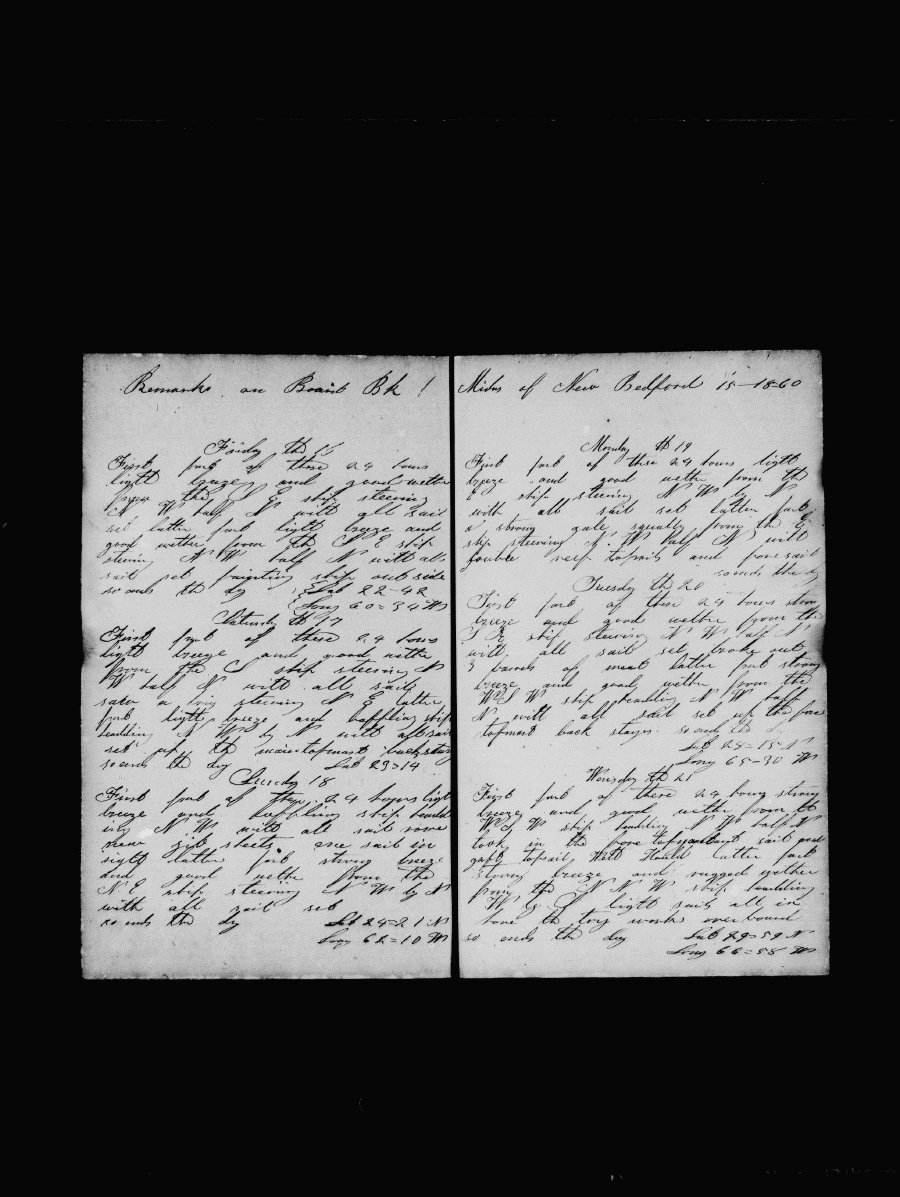 Remarks on Board Bk
Friday th
First part of these 24 hours
light breeze and good wether
from the S E ship steering
N W half N with all sail
set latter part light breeze and
good wether from the S E ship
steering N W half N with all
sail set painting ship out side
so ends th dy Lat 22=42
Long 60=34 W
Saturday th 17
First part of these 24 hours
light breeze and good wether
from the S ship steering N
W half N with all sail
saw a brig steering N E latter
part light breeze and baffling ship
heading N W by N with all sail
set up th main topmast back stay
so ends th dy Lat 23=14
Sunday 18
First part of these 24 hours light
breeze and baffling ship head
ing N W with all sail
new jib sheets one sail in
sight latter part strong breeze
and good wether from the
N E ship steering N W by N
with all sail set
so ends th dy Lat 24=21 N
Long 62=10 W
Midas of New Bedford 15 1860
Monday th 19
First part of these 24 hours light
breeze and good wether from the
E ship steering N W by N
with all sail set latter part
a strong gale squally from the E
ship steering N W half N with
double reef topsails and fore sail
so ends the dy
Tuesday th 20
First part of these 24 hours strong
breeze and good wether from the
S E ship steering N W half N
with all sail set broke out
3 barrels of meat latter part strong
breeze and good wether from the
W S W ship heading N W half
N with all sail set up the fore
topmast back stays so ends the d
Lat 28=15 N
Long 65=30 W
Wensday th 21
First part of these 24 hours strong
breeze and good wether from th
W S W ship heading N W half N
took in the fore topgallant sail and
gaff topsail latter part
strong breeze and rugged wether
from the N N W ship heading
W by S light sails all in
hove the try works over bound
so ends the dy Lat 29=59 N
Long 66=58 W